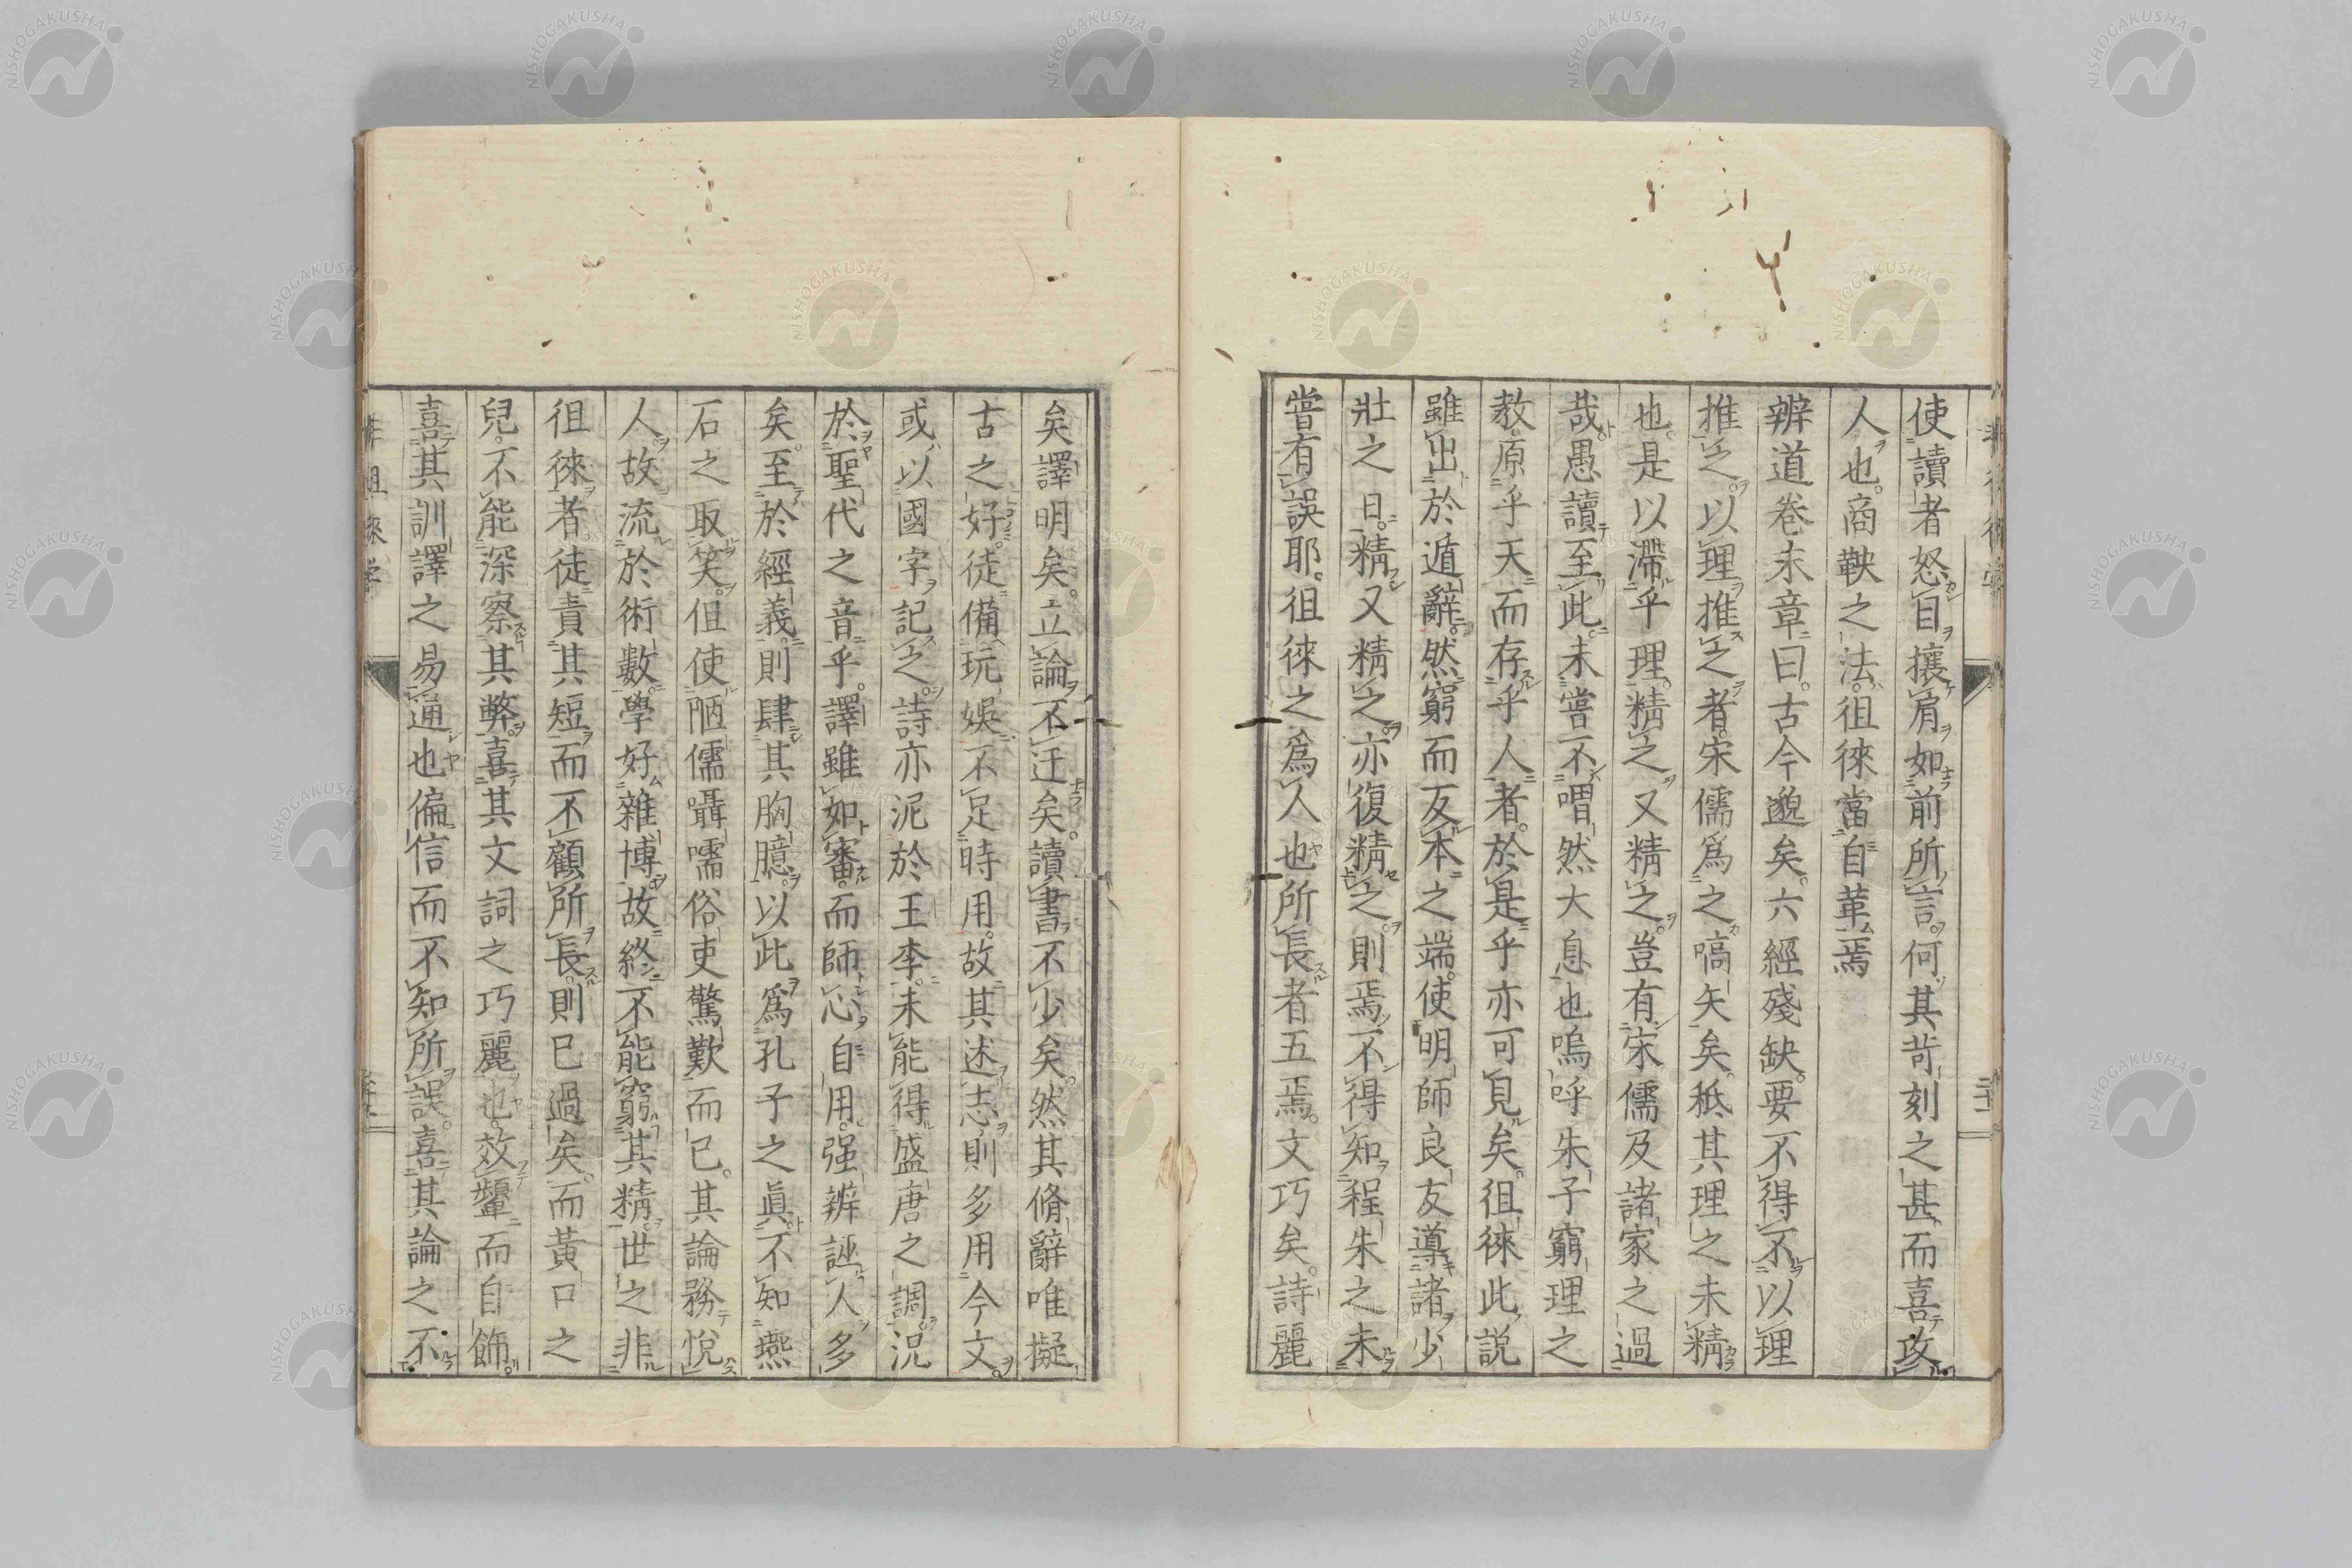 使讀者怒目攘肩如前所言何其苛刻之甚而喜攻
人也商鞅之法徂徠當自革焉
辨道卷末章曰古今邈矣六經殘缺要不得不以理
推之以理推之者宋儒爲之嚆矢矣秪其理之未精
也是以滯乎理精之又精之豈有宋儒及諸家之過
哉愚讀至此未嘗不喟然大息也嗚呼朱子窮理之
教原乎天而存乎人者於是乎亦可見矣徂徠此説
雖出於遁辭然窮而反本之端使明師良友導諸少
壯之日精又精之亦復精之則焉不得知程朱之未
嘗有誤耶徂徠之爲人也所長者五焉文巧矣詩麗
矣譯明矣立論不迂矣讀書不少矣然其脩辭唯擬
古之好徒備玩娛不足時用故其述志則多用今文
或以國字記之詩亦泥於王李未能得盛唐之調況
於聖代之音乎譯雖如審而師心自用强辨誣人多
矣至於經義則肆其胸臆以此爲孔子之眞不知燕
石之取笑但使陋儒囁嚅俗吏驚歎而已其論務悅
人故流於術數學好雜博故終不能窮其精世之非
徂徠者徒責其短而不顧所長則已過矣而黃口之
兒不能深察其弊喜其文詞之巧麗也效顰而自飾
喜其訓譯之易通也偏信而不知所誤喜其論之不